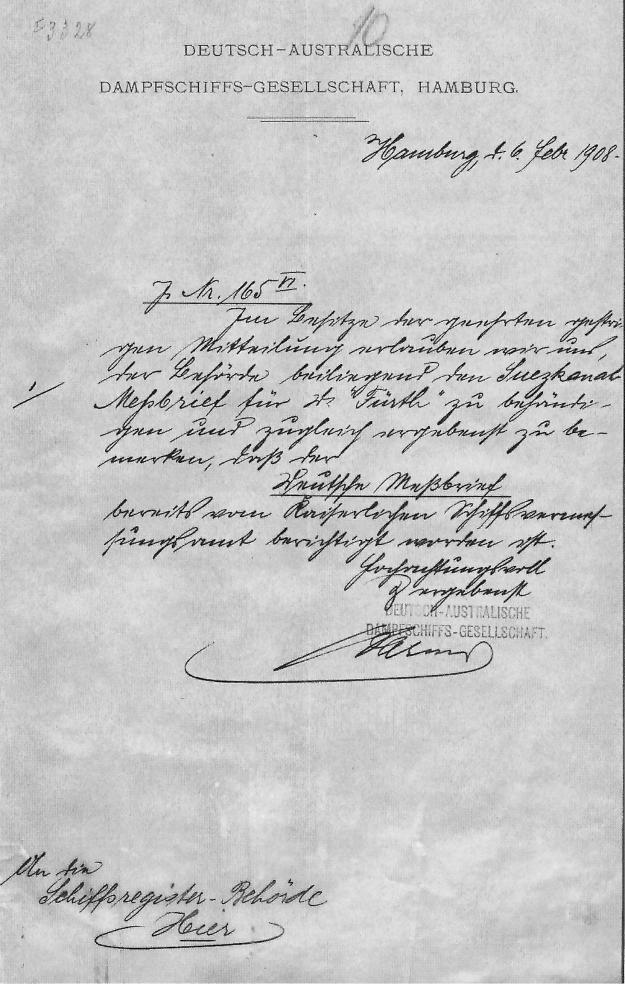 53328
10
DEUTSCH-AUSTRALISCHE
DAMPFSCHIFFS-GESELLSCHAFT, HAMBURG.
Hamburg, d. 6. Febr 1908.
J. Nr. 165 VI.
Im Besitze der geehrten gestri-
gen Mitteilung erlauben wir uns,
der Behörde beiliegend den Suezkanal-
1/
Meßbrief für D. "Fürth" zu behändi-
gen und zugleich ergebenst zu be-
merken, daß der
Deutsche Meßbrief
bereits vom Kaiserlichen Schiffsvermes-
sungsamt berichtigt worden ist.
Hochachtungsvoll
ergebenst
DEUTSCH-AUSTRALISCHE
DAMPFSCHIFFS-GESELLSCHAFT.
An die
Schiffsregister-Behörde
Hier